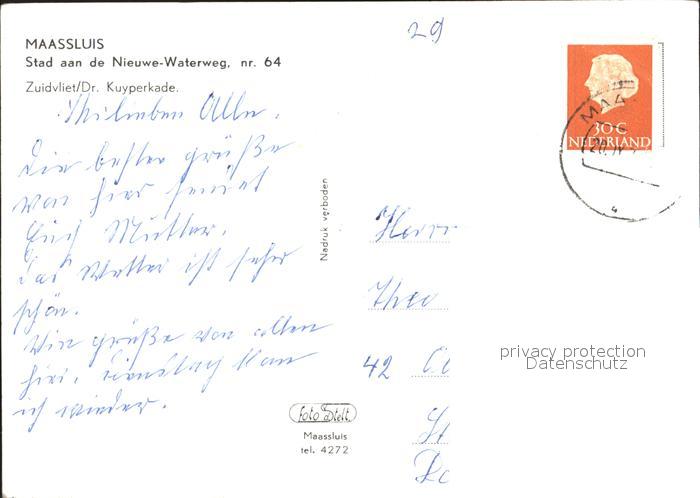 29
MAASSLUIS
Stad aan de Nieuwe-Waterweg, nr. 64
Zuidvliet/Dr. Kuyperkade.
Ihr lieben Alle.
Die besten Grüße
von hier sendet
Euch Mutter.
Das Wetter ist sehr
schön.
Viele Grüße von allen
hier. Dienstag kom
ich wieder.
Nadruk verboden
Foto Stelt
Maassluis
tel. 4272
30 C
NEDERLAND
MAA
4
Herrn
Theo
42
St
privacy protection
Datenschutz